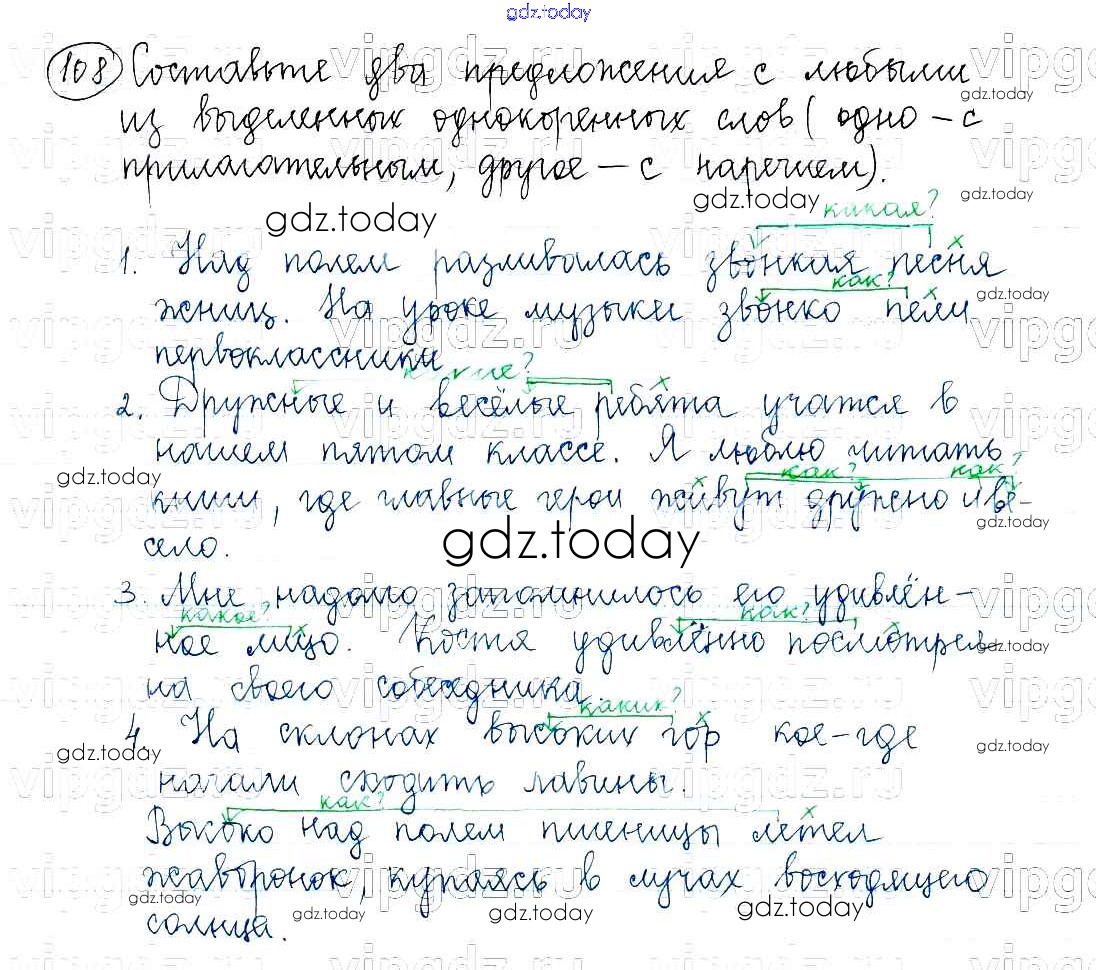 gdz.today
108 Составьте два предложения с любыми
из выделенных однокоренных слов (одно – с
прилагательным, другое – с наречием).
gdz.today
gdz.today
какая? х
1. Над полем разливалась звонкая песня
как? х
жниц. На уроке музыки звонко пели
первоклассники
какие? х
2. Дружные и весёлые ребята учатся в
нашем пятом классе. Я люблю читать
х как? как?
книги, где главные герои живут дружно и ве-
село.
gdz.today
3. Мне надолго запомнилось его удивлён-
какое? х как? х
ное лицо. Костя удивлённо посмотрел
на своего собеседника.
каких? х
4. На склонах высоких гор кое-где
начали сходить лавины.
как? х
Высоко над полем пшеницы летел
жаворонок, купаясь в лучах восходящего
солнца.
gdz.today
gdz.today
gdz.today